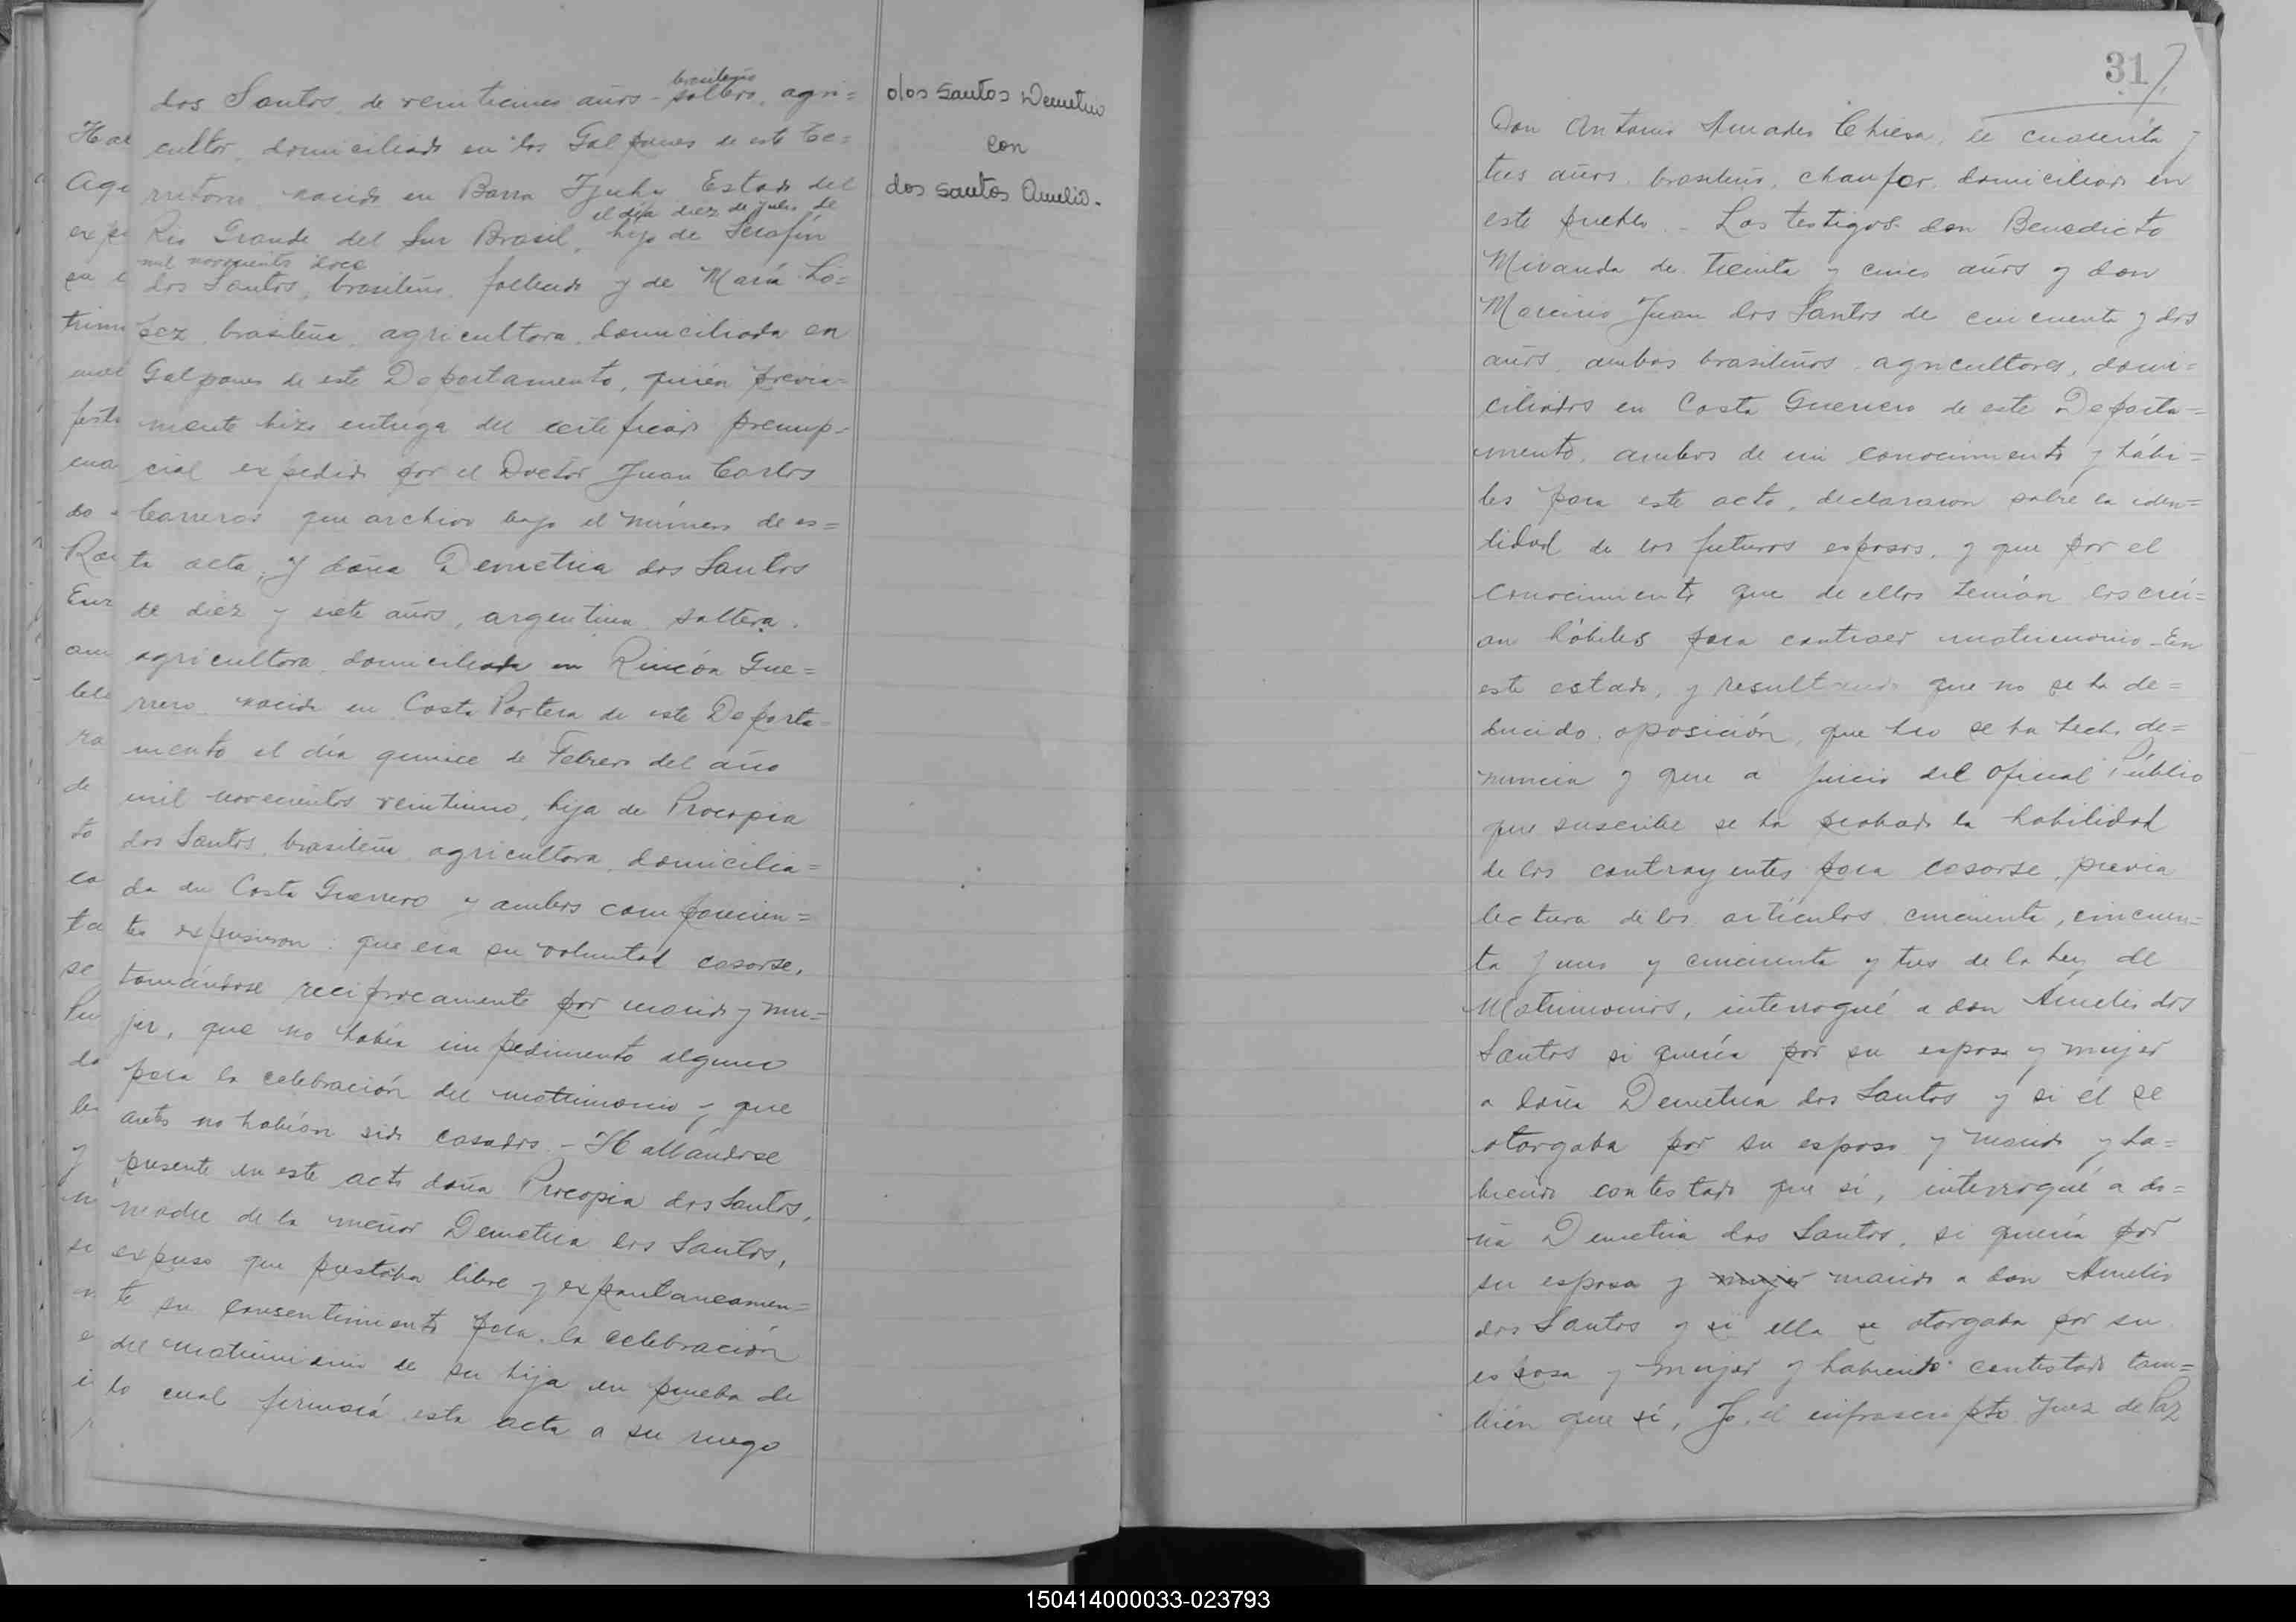 dos Santos, de veinticinco años - soltero, agri=
brasileño
cultor, domiciliado en los Galpones de este Te=
rritorio, nacido en Barra Ijuhy Estado del
el día diez de julio de
Rio Grande del Sur Brasil, hijo de Serafín
mil novecientos doce
dos Santos, brasileño, fallecido y de María Ló=
pez, brasileña, agricultora, domiciliada en
Galpones de este Departamento, quien previa=
mente hizo entrega del certificado prenup=
cial expedido por el Doctor Juan Carlos
Carreras que archivo bajo el número de es=
ta acta, y doña Demetria dos Santos
de diez y siete años, argentina, soltera,
agricultora, domiciliada en Rincón Gue=
rrero, nacida en Costa Portera de este Departa=
mento el día quince de Febrero del año
mil novecientos veintiuno, hija de Procopia
dos Santos, brasileña, agricultora, domicilia=
da en Costa Guerrero y ambos comparecien=
tes expusieron: que era su voluntad casarse,
tomándose recíprocamente por marido y mu=
jer, que no había impedimento alguno
para la celebración del matrimonio y que
antes no habían sido casados. - Hallándose
presente en este acto doña Procopia dos Santos,
madre de la menor Demetria dos Santos,
expuso que prestaba libre y expontaneamen=
te su consentimiento para la celebración
del matrimonio de su hija en prueba de
lo cual firmará esta acta a su ruego
dos santos Demetrio
con
dos santos Amelio.
31
Don Antonio Amadeo Chiesa, de cuarenta y
tres años, brasileño, chaufer, domiciliado en
este pueblo. - Los testigos don Benedicto
Miranda de treinta y cinco años y don
Marcirio Juan dos Santos de cincuenta y dos
años, ambos brasileños, agricultores, domi=
ciliados en Costa Guerrero de este Departa=
mento, ambos de mi conocimiento y hábi=
les para este acto, declararon sobre la iden=
tidad de los futuros esposos, y que por el
conocimiento que de ellos tenían los creí=
an hábiles para contraer matrimonio - En
este estado, y resultando que no se ha de=
ducido oposición, que no se ha hecho de=
nuncia y que a juicio del oficial Público
que suscribe se ha probado la habilidad
de los contrayentes para casarse, previa
lectura de los artículos cincuenta, cincuen=
ta y uno y cincuenta y tres de la Ley de
Matrimonios, interrogué a don Amelio dos
Santos si quería por su esposa y mujer
a doña Demetria dos Santos y si él se
otorgaba por su esposo y marido y ha=
biendo contestado que sí, interrogué a do=
ña Demetria dos Santos, si quería por
su esposo y mujer marido a don Amelio
dos Santos y si ella se otorgaba por su
esposa y mujer y habiendo contestado tam=
bién que sí, Yo, el infrascripto Juez de Paz
150414000033-023793